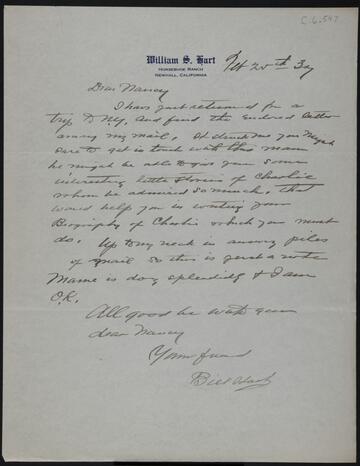 C.6.547
William S. Hart
Horseshoe Ranch
Newhall, California
25th 39
Dear Nancy
I have just returned from a
trip to N.Y. and find the enclosed letter
among my mail. It struck me you might
care to get in touch with this man
he might be able to give you some
interesting little stories of Charlie
whom he admired so much, that
would help you in writing your
Biography of Charlie which you must
do. Up to my neck in answering piles
of mail so this is just a note
Mame is doing splendidly & I am
O.K.
All good be with you
dear Nancy
Your friend
Bill Hart